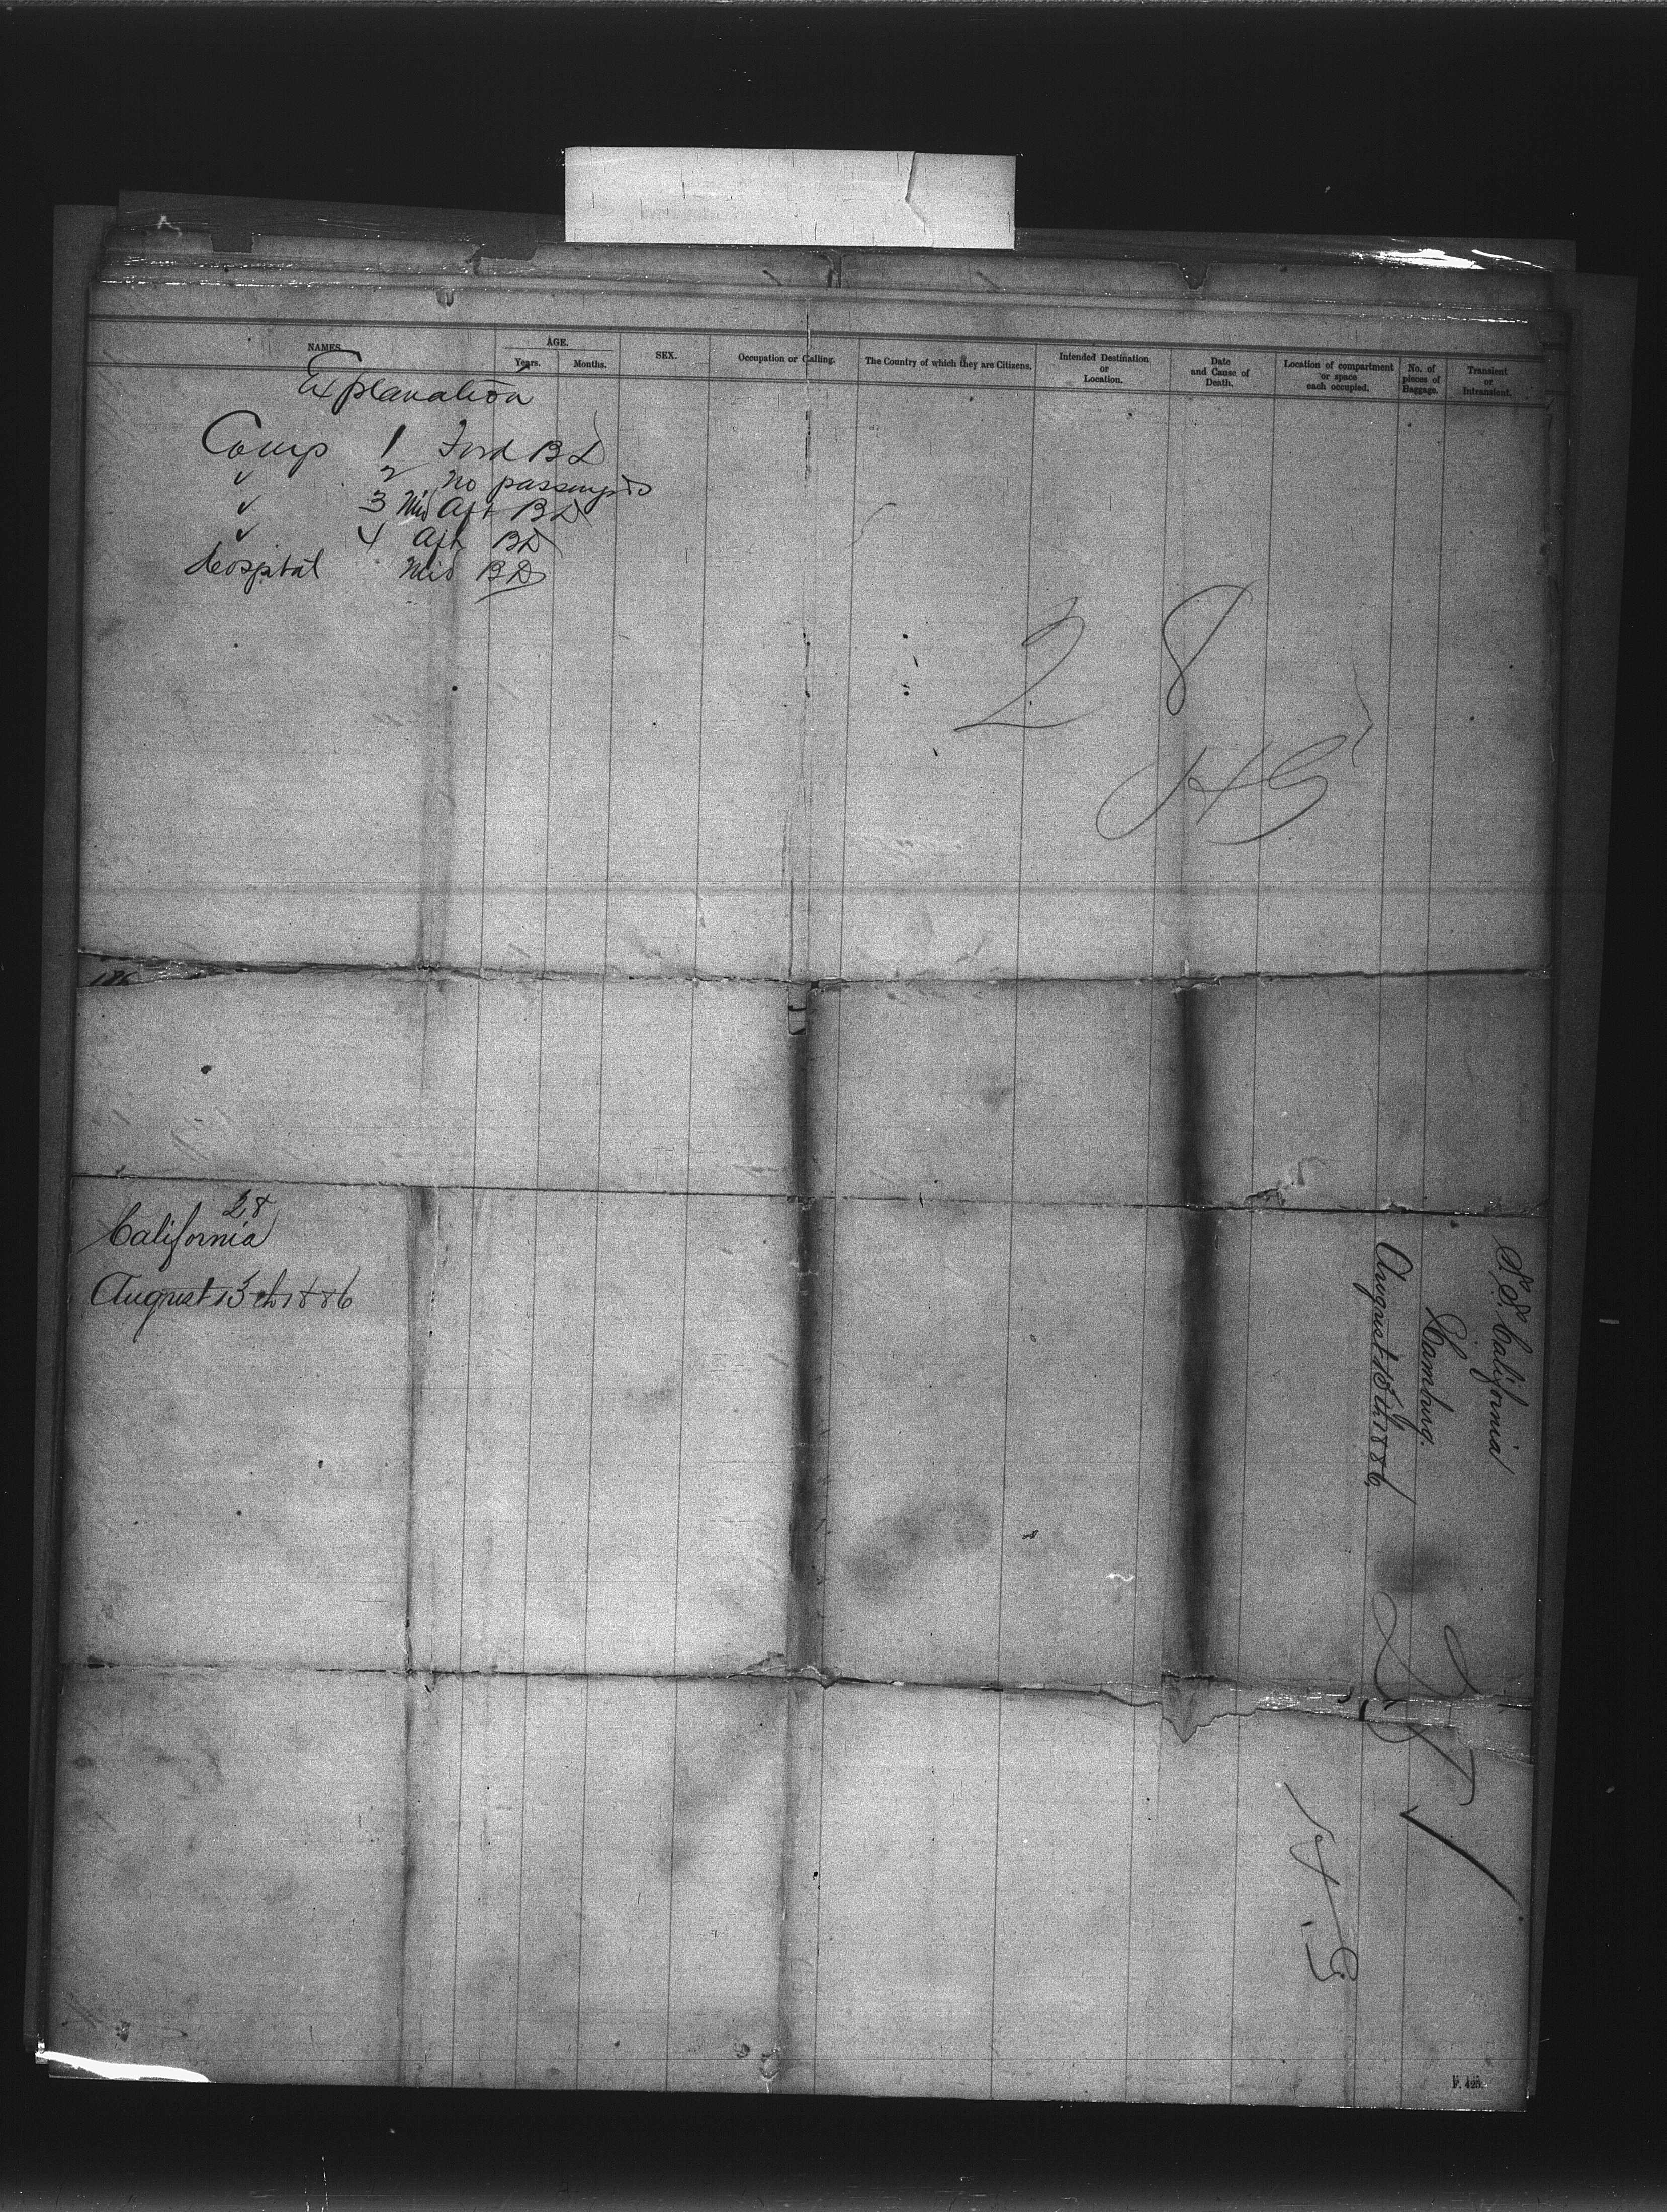 NAMES. AGE. SEX. Occupation or Calling. The Country of which they are Citizens. Intended Destination or Location. Date and Cause of Death. Location of compartment or space each occupied. No. of pieces of Baggage. Transient or Intransient.
Years. Months.
Explanation
Comp 1 Ford BD
✓ 2 No passengers
✓ 3 Mid Aft BD
✓ 4 Aft BD
Hospital Mid BD
2 8
186
28
California
August 13th 1886
S.S. California
Hamburg.
August 13th 1886
28
1
F. 425.